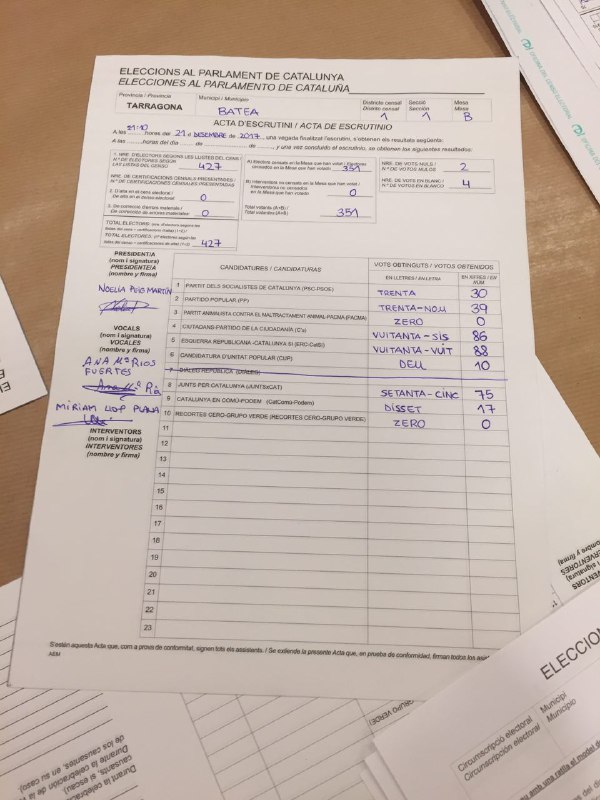 ELECCIONS AL PARLAMENT DE CATALUNYA
ELECCIONES AL PARLAMENTO DE CATALUÑA
Província / Provincia
Municipi / Municipio
TARRAGONA
BATEA
Districte censal
Distrito censal
1
Secció
Sección
1
Mesa
Mesa
B
ACTA D'ESCRUTINI / ACTA DE ESCRUTINIO
A les 21:10 hores del 21 d DESEMBRE de 2017, una vegada finalitzat l'escrutini, s'obtenen els resultats següents:
A las horas del día de de y una vez concluido el escrutinio, se obtienen los siguientes resultados:
1. NRE. D'ELECTORS SEGONS LES LLISTES DEL CENS /
N.º DE ELECTORES SEGÚN
LAS LISTAS DEL CENSO 427
NRE. DE CERTIFICACIONS CENSALS PRESENTADES /
N.º DE CERTIFICACIONES CENSALES PRESENTADAS
2. D'alta en el cens electoral / 0
3. De correcció d'errors materials /
De corrección de errores materiales 0
TOTAL ELECTORS:
TOTAL ELECTORES: 427
A) Electors censats en la Mesa que han votat / Electores
censados en la Mesa que han votado 351
B) Interventors no censats en la Mesa que han votat /
Interventores no censados en la Mesa que han votado 0
Total votants (A+B) /
Total votantes (A+B) 351
NRE. DE VOTS NULS /
N.º DE VOTOS NULOS 2
NRE. DE VOTS EN BLANC /
N.º DE VOTOS EN BLANCO 4
PRESIDENT/A
(nom i signatura)
PRESIDENTE/A
(nombre y firma)
NOELIA PUIG MARTÍN
VOCALS
(nom i signatura)
VOCALES
(nombre y firma)
ANA Mª RIOS
FUERTES
MIRIAM LLOP PLANA
INTERVENTORS
(nom i signatura)
INTERVENTORES
(nombre y firma)
CANDIDATURES / CANDIDATURAS
VOTS OBTINGUTS / VOTOS OBTENIDOS
EN LLETRES / EN LETRA
EN XIFRES / EN NÚM
1 PARTIT DELS SOCIALISTES DE CATALUNYA (PSC-PSOE) TRENTA 30
2 PARTIDO POPULAR (PP) TRENTA-NOU 39
3 PARTIT ANIMALISTA CONTRA EL MALTRACTAMENT ANIMAL-PACMA (PACMA) ZERO 0
4 CIUTADANS-PARTIDO DE LA CIUDADANÍA (C's) VUITANTA-SIS 86
5 ESQUERRA REPUBLICANA-CATALUNYA SÍ (ERC-CatSí) VUITANTA-VUIT 88
6 CANDIDATURA D'UNITAT POPULAR (CUP) DEU 10
7 DIÀLEG REPÚBLICA (DIÀLEG)
8 JUNTS PER CATALUNYA (JUNTSxCAT) SETANTA-CINC 75
9 CATALUNYA EN COMÚ-PODEM (CatComú-Podem) DISSET 17
10 RECORTES CERO-GRUPO VERDE (RECORTES CERO-GRUPO VERDE) ZERO 0
11
12
13
14
15
16
17
18
19
20
21
22
23
S'estén aquesta Acta que, com a prova de conformitat, signen tots els assistents. / Se extiende la presente Acta que, en prueba de conformidad, firman todos los
GRUPO VERDE)
ELECCION
Circumscripció electoral
Circunscripción electoral
Municipi
Municipio